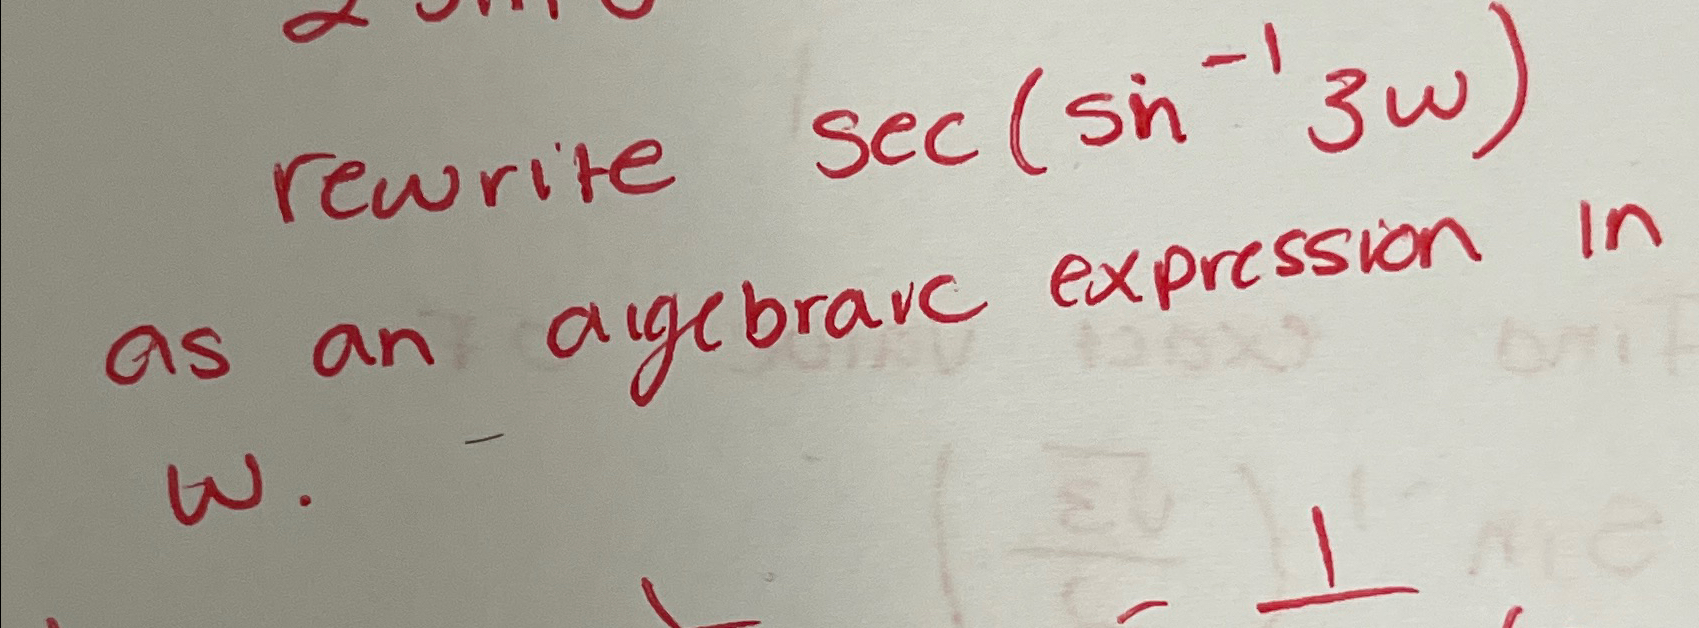 rewrite sec(sin⁻¹ 3w)
as an algebraic expression in
w.
1